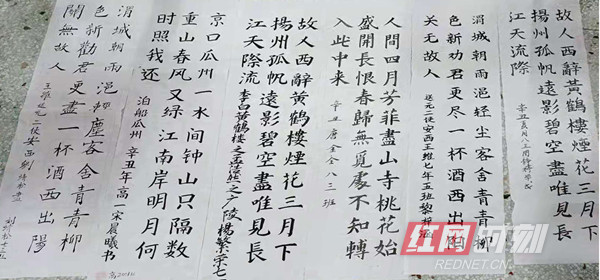 故人西辭黃鶴樓煙花三月下
揚州孤帆遠影碧空盡唯見長
江天流際
渭城朝雨浥轻尘客舍青青柳
色新劝君更尽一杯酒西出阳
关无故人
送元二使安西王维七年五班
人間四月芳菲盡山寺桃花始
盛開長恨春歸無覓處不知轉
入此中来
辛丑唐全全八三班
故人西辭黃鶴樓煙花三月下
揚州孤帆遠影碧空盡唯見長
江天際流
李白黃鶴樓之孟浩然之广陵楊繁榮七
京口瓜州一水间钟山只隔数
重山春风又绿江南岸明月何
时照我还
泊船瓜州辛丑年高一宋晨曦书
渭城朝雨浥輕塵客舍青青柳
色新勸君更盡一杯酒西出陽
關無故人
红网时刻
REDNET.CN